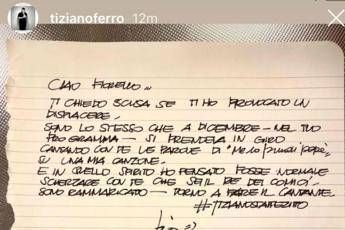 tizianoferro 12m
CIAO FIORELLO,
TI CHIEDO SCUSA SE TI HO PROVOCATO UN
DISPIACERE.
SONO LO STESSO CHE A DICEMBRE - NEL TUO
PROGRAMMA - SI PRENDEVA IN GIRO
CANTANDO CON TE LE PAROLE DI "
SU UNA MIA CANZONE.
E IN QUELLO SPIRITO HO PENSATO FOSSE NORMALE
SCHERZARE CON TE CHE SEI IL RE DEI COMICI.
SONO RAMMARICATO - TORNO A FARE IL CANTANTE.
#TIZIANOSTAIZITTO